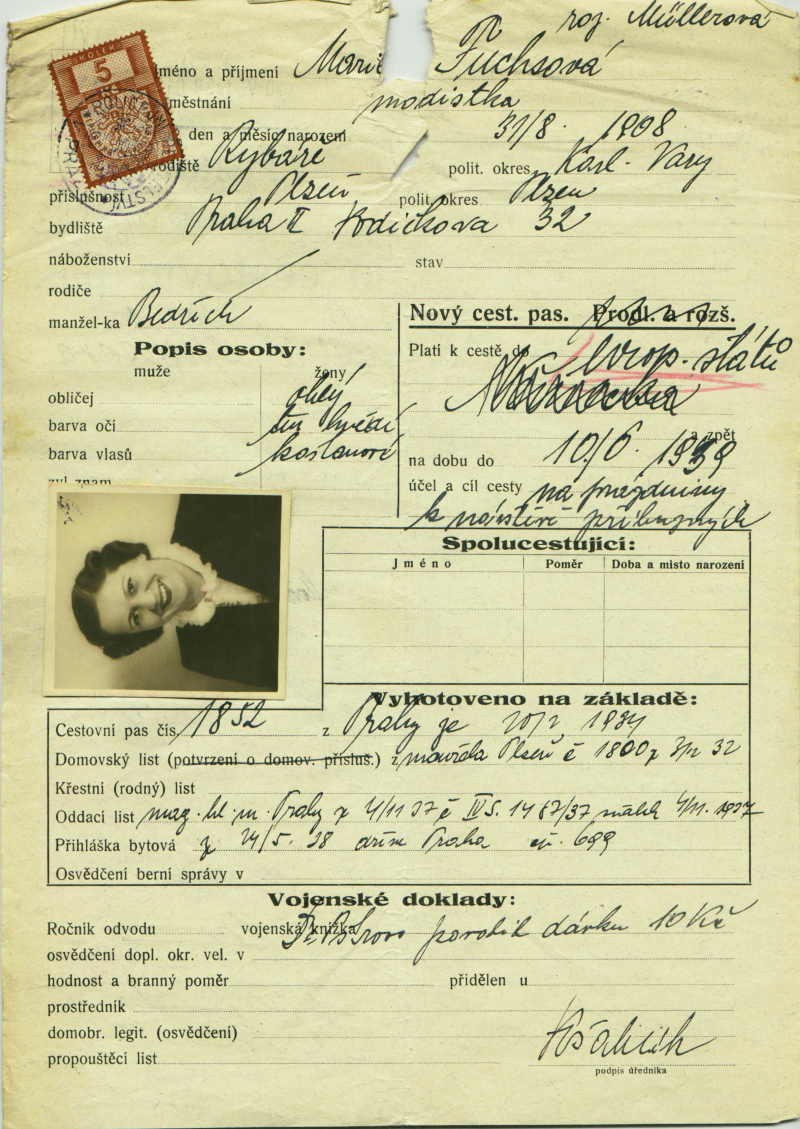 roz. Müllerová
KOLEK
5
méno a příjmení Marie Fuchsová
městnání modistka
den a měsíc narození 31/8. 1908
rodiště Rybáře polit. okres Karl. Vary
příslušnost Plzeň polit. okres Plzeň
bydliště Praha II Vodičkova 32
náboženství stav
rodiče
manžel-ka Bedřich
Nový cest. pas. Prodl. a rozš.
Popis osoby:
muže ženy
obličej
barva očí tm hnědé
barva vlasů kaštanové
zvl znam.
Platí k cestě do evrop. států
a zpět
na dobu do 10/6. 1939
účel a cíl cesty na prázdniny
k návštěvě příbuzných
Spolucestující:
Jméno Poměr Doba a místo narození
Vyhotoveno na základě:
Cestovní pas čís. 1852 z Prahy je 1934
Domovský list (potvrzení o domov. přísluš.) z Plzeň č 1800 z 32
Křestní (rodný) list
Oddací list mag. hl. m. Prahy z 4/11 37 č IV S. 1487/37 4/11. 1937
Přihláška bytová z 24/5. 38 Praha 699
Osvědčení berní správy v
Vojenské doklady:
Ročník odvodu vojenská knížka
povolil dávku 10 Kč
osvědčení dopl. okr. vel. v
hodnost a branný poměr přidělen u
prostředník
domobr. legit. (osvědčení)
propouštěcí list
podpis úředníka